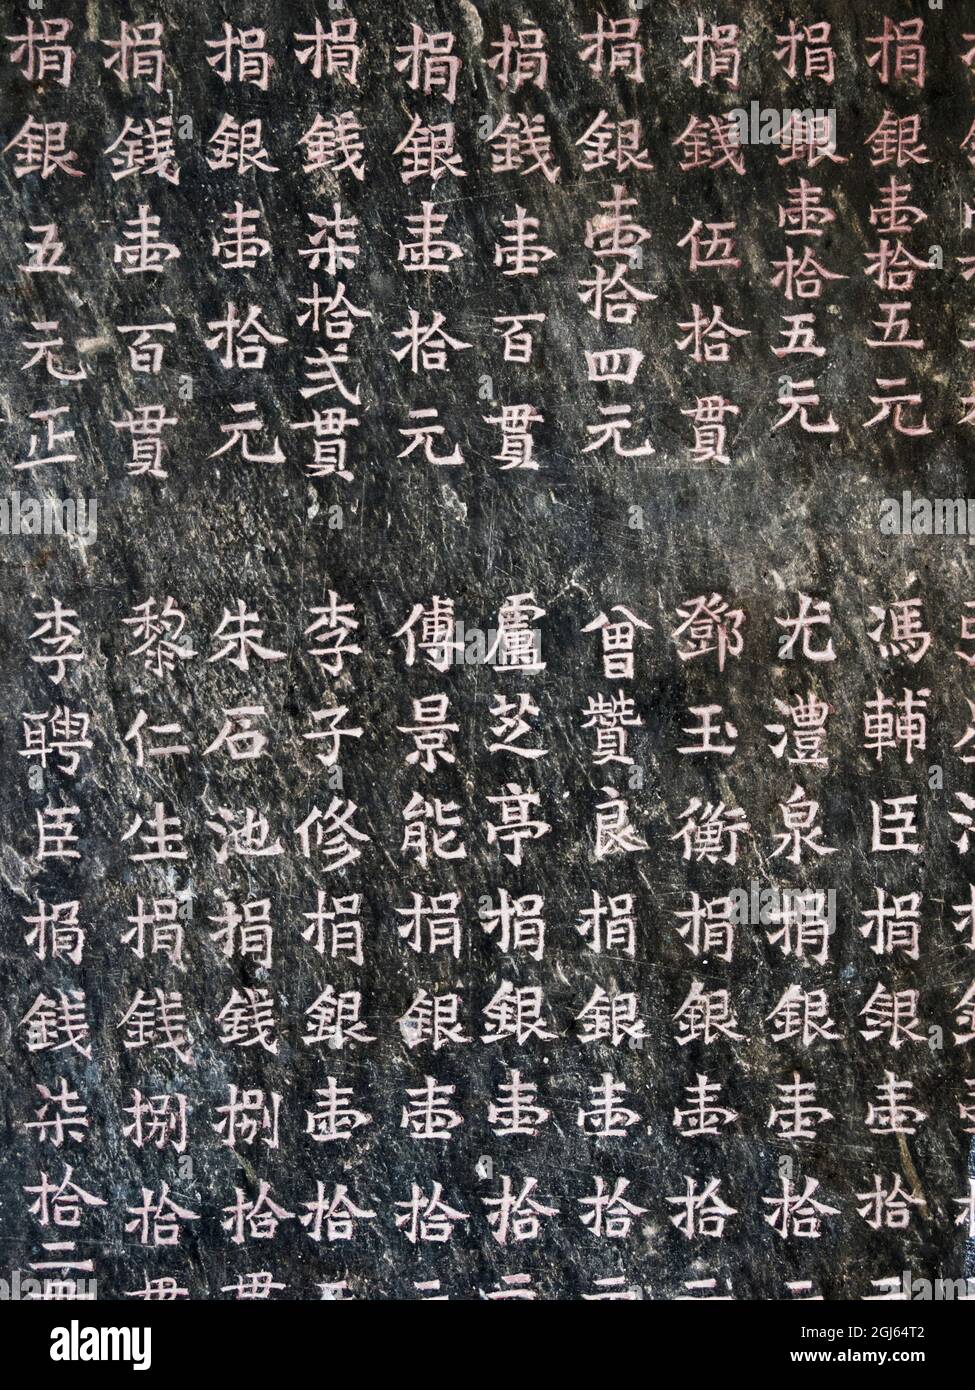 捐銀壹拾五元
捐銀壹拾五元
捐錢伍拾貫
捐銀壹拾四元
捐錢壹百貫
捐銀壹拾元
捐錢柒拾弍貫
捐銀壹拾元
捐錢壹百貫
捐銀五元正
馮輔臣捐銀壹拾
尤澧泉捐銀壹拾二
鄧玉衡捐銀壹拾二
曾贊良捐銀壹拾二
盧芝亭捐銀壹拾
傅景能捐銀壹拾二
李子修捐銀壹拾
朱石池捐錢捌拾貫
黎仁生捐錢捌拾貫
李聘臣捐錢柒拾二
alamy
Image ID: 2GJ64T2
www.alamy.com